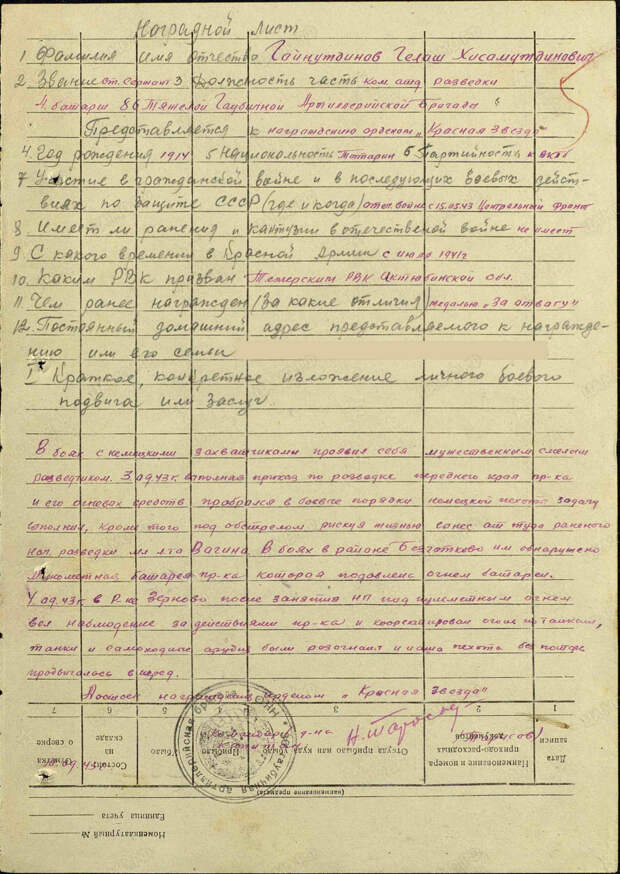 Наградной лист
1. Фамилия имя отчество Гайнутдинов Гелаш Хисамутдинович
2. Звание ст. сержант 3 Должность часть ком. отд. разведки
4 батареи 86 Тяжелой Гаубичной Артиллерийской Бригады
Представляется к награждению орденом „Красная Звезда"
4. Год рождения 1914 5 Национальность татарин 6 Партийность к ВКП
7 Участие в гражданской войне и в последующих боевых дейст-
виях по защите СССР (где и когда) отеч. войне с 15.05.43 Центральный фронт
8. Имеет ли ранения и кантузии в отечественной войне не имеет
9. С какого времени в Красной Армии с июля 1941г
10. Каким РВК призван Темерским РВК Актюбинской обл.
11. Чем ранее награжден (за какие отличия) медалью „За отвагу"
12. Постоянный домашний адрес представляемого к награжде-
нию или его семьи
I Краткое, конкретное изложение личного боевого
подвига или заслуг
В боях с немецкими захватчиками проявил себя мужественным смелым
разведчиком. 3.09.43г. выполняя приказ по разведке переднего края пр-ка
и его огневых средств пробрался в боевые порядки немецкой пехоты задачу
выполнил, кроме того под обстрелом рискуя жизнью вынес от туда раненого
нач. разведки мл л-та Вагина. В боях в районе Безготково им обнаружено
батарея пр-ка которая подавлена огнем батареи.
4.09.43г. в р-не Зерново после занятия НП под пулеметным огнем
вел наблюдение за действиями пр-ка и корректировал огонь по танкам,
танки и самоходные орудия были разогнаны и наша пехота без потерь
продвигалась вперед.
Достоин награждения орденом „Красная Звезда"
Командир д-на
Дата записи
Наименование и номера приходо-расходных документов
Откуда прибыло или куда убыло
Прибыло
Убыло
Состоит на складе
Отметка о сверке
1 2 3 4 5 6 7
(наименование предмета)
Единица учета
Номенклатурный №